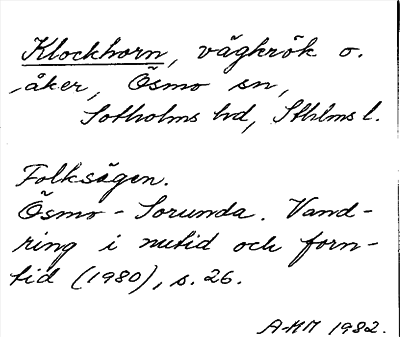 Klockhorn, vägkrök o.
åker, Ösmo sn,
Sotholms hd, Sthlms l.
Folksägen.
Ösmo - Sorunda. Vand-
ring i nutid och forn-
tid (1980), s. 26.
AHM 1982.